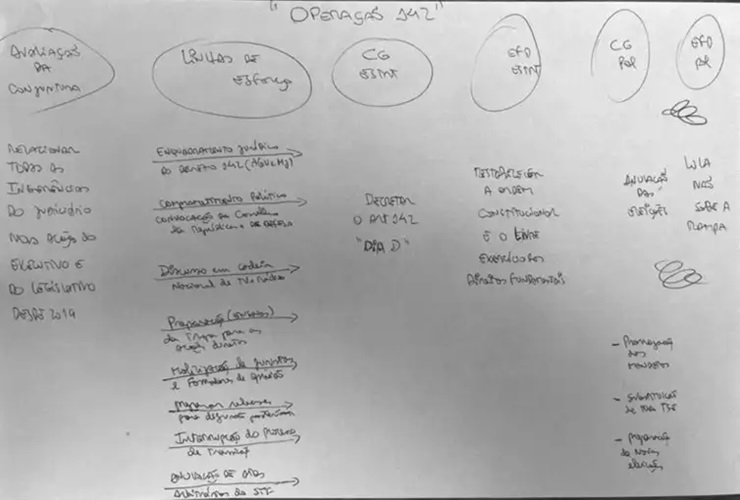 "OPERAÇÃO 142"
AVALIAÇÃO
DA
CONJUNTURA
RELACIONAR
TODAS AS
INGERÊNCIAS
DO JUDICIÁRIO
NAS AÇÃO DO
EXECUTIVO E
DO LEGISLATIVO
DESDE 2019
LINHAS DE
ESFORÇO
ENQUADRAMENTO JURÍDICO
DO DECRETO 142 (AGU e MJ)
COMPROMETIMENTO POLÍTICO
CONVOCAÇÃO DO CONSELHO
DA REPÚBLICA E DE DEFESA
Discurso em cadeia
Nacional de TV e Rádio
Preparação
da Tropa para as
ações diretas
Mobilização de juristas
e Formadores de opinião
para
Interrupção do Processo
de Transição
ANULAÇÃO DE ATOS
arbitrários do STF
CG
ESTRT
DECRETAR
O ART 142
"DIA D"
EFD
ESTRT
RESTABELECER
A ORDEM
CONSTITUCIONAL
E O LIVRE
EXERCÍCIO DOS
DIREITOS FUNDAMENTAIS
CG
POL
ANULAÇÃO
DAS
ELEIÇÕES
- Prorrogação
dos
MANDATOS
- SUBSTITUIÇÃO
de todo TSE
- preparação
de Novas
eleições
EFD
POL
LULA
NÃO
SOBE A
RAMPA